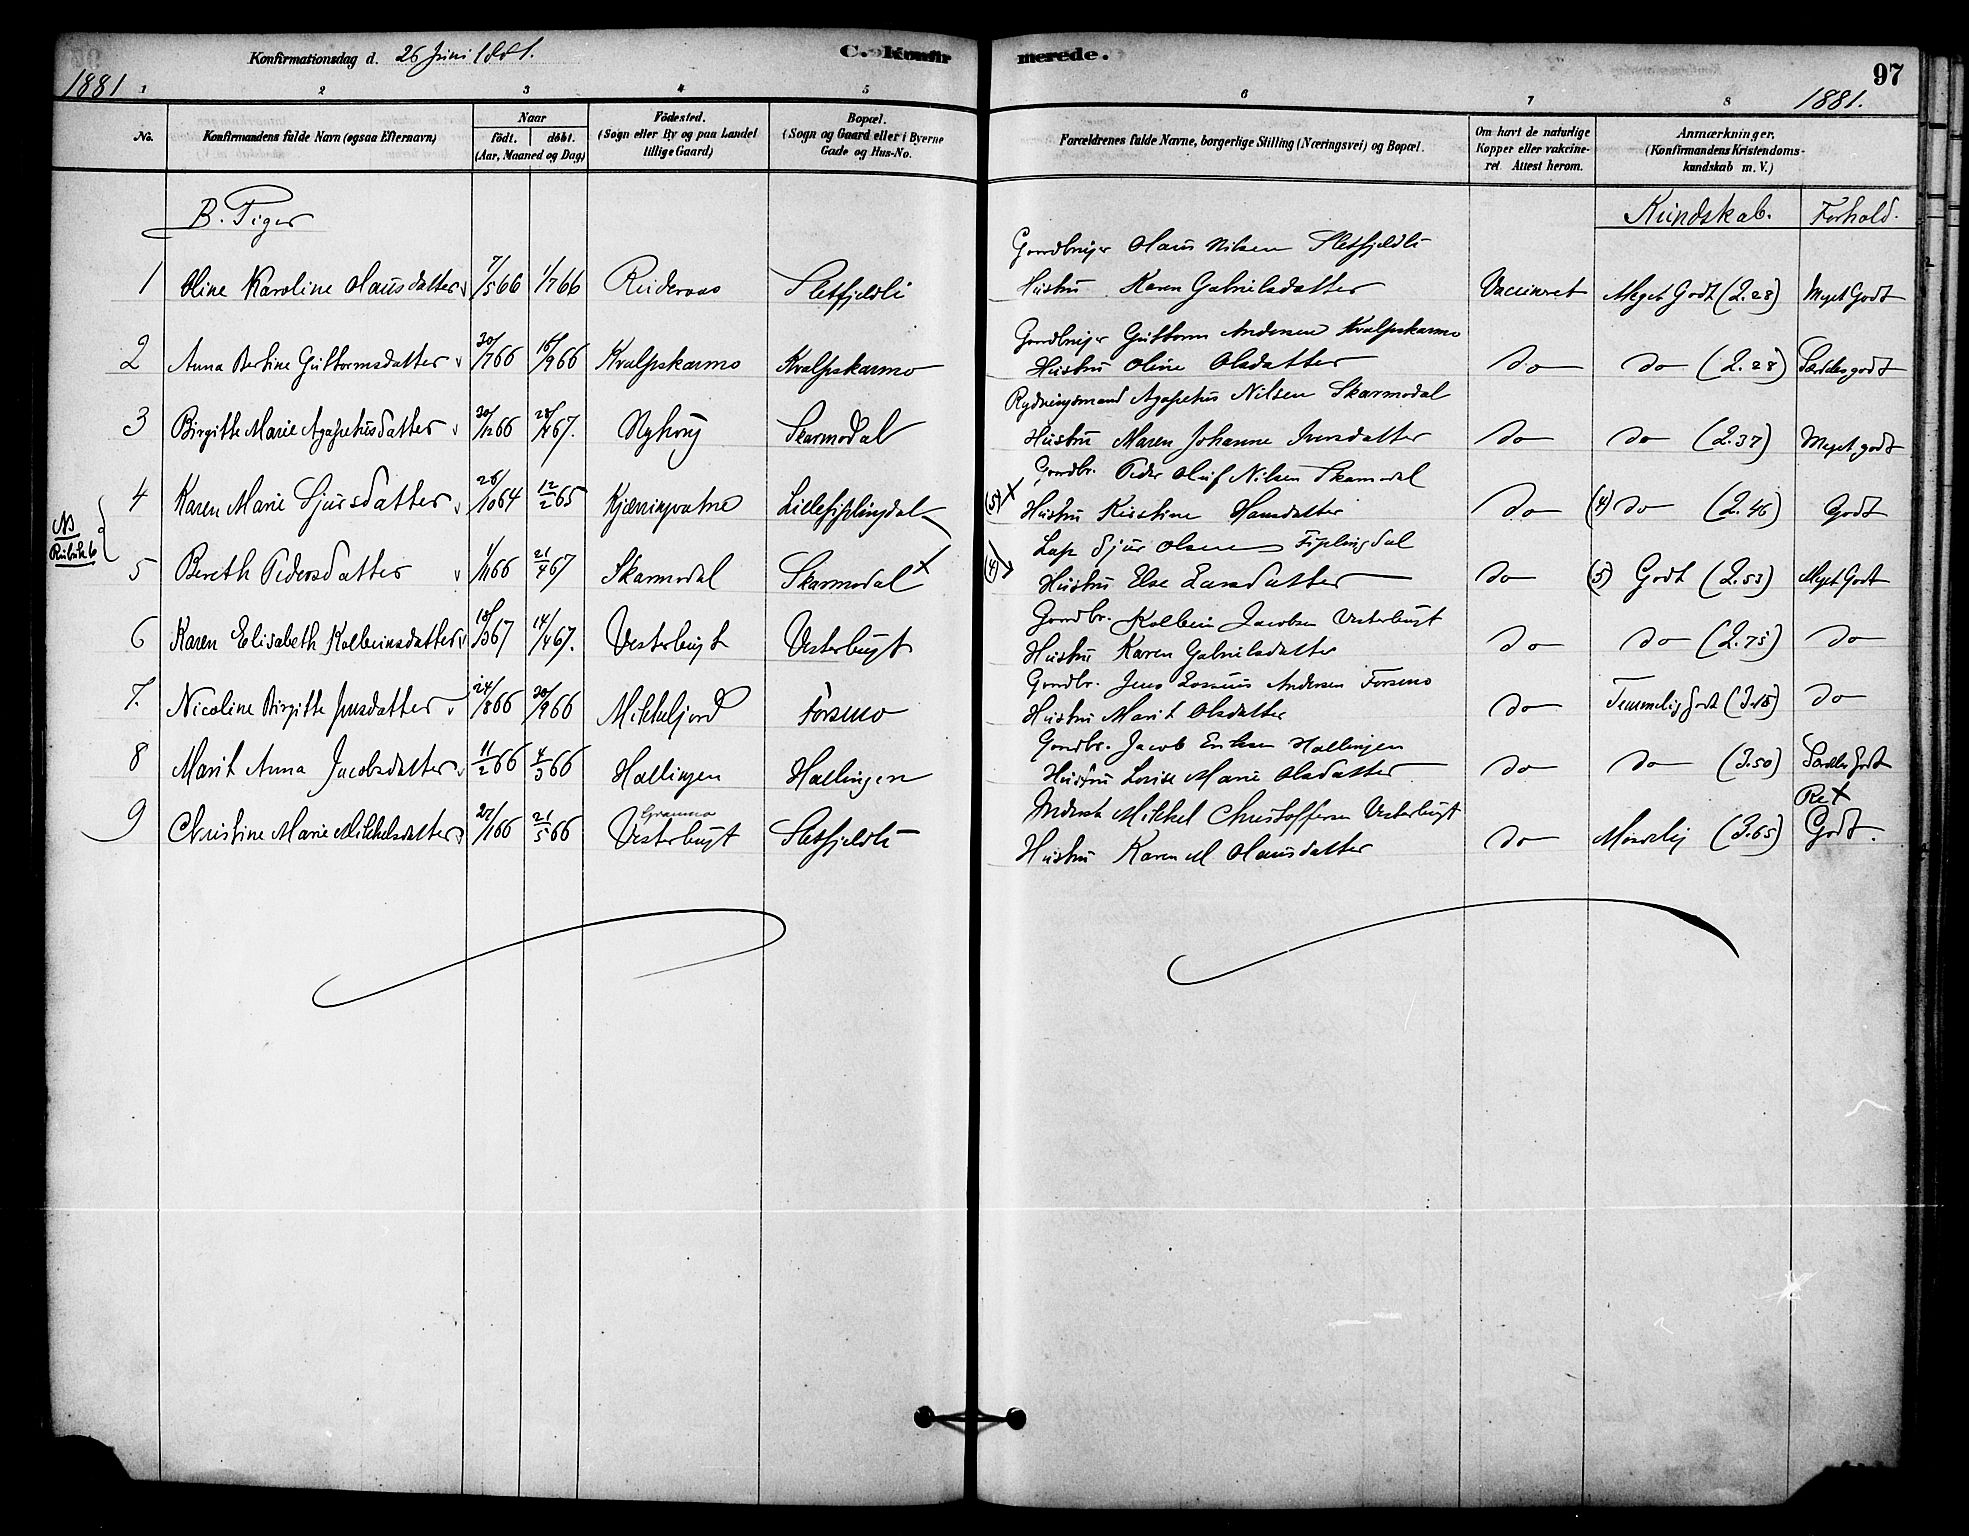 Konfirmationsdag d. 26 Juni 1881.
C. Konfirmerede.
97
1881
1881.
1 2 3 4 5 6 7 8
No.
Konfirmandens fulde Navn (ogsaa Efternavn)
Naar
født. døbt.
(Aar, Maaned og Dag)
Fødested.
(Sogn eller By og paa Landet
tillige Gaard)
Bopæl.
(Sogn og Gaard eller i Byerne
Gade og Hus-No.
Forældrenes fulde Navne, borgerlige Stilling (Næringsvei) og Bopæl.
Om havt de naturlige
Kopper eller vakcine-
ret Attest herom.
Anmærkninger.
(Konfirmandens Kristendoms-
kundskab m. V.)
B. Piger
Kundskab. Forhold.
Hans Nilsen Sletfjeldli
1 Oline Karoline Hansdatter 7/5 66 1/7 66 Sletfjeldli Hustru Karen Gabrielsdatter Vaccineret Meget Godt (2.28) Meget Godt
Guttorm Andersen Kvalpskarmo
2 Anna Bertine Guttormsdatter 30/7 66 16/9 66 Kvalpskarmo Kvalpskarmo Hustru Oline Olsdatter do do (2.28) Særdeles godt
Rydningsmand Agapetus Nilsen Skarmodal
3 Birgitte Marie Agapetusdatter 30/12 66 67. Skarmodal Hustru Maren Johanne Iversdatter do do (2.37) Meget godt
Gaardbr. Peder Oluf Nilsen Skarmodal
4 Karen Marie Sjursdatter 26/10 64 12/2 65 Kjærringvatne Lillefiplingdal (5) x Hustru Kirstine Hansdatter do (4) do (2.46) Godt
NB
Rubrik 6
Lap Sjur Olsen Fiplingdal
5 Bereth Pedersdatter 1/11 66 21/4 67 Skarmodal Skarmodal x (4) Hustru Else Larsdatter do (5) Godt (2.53) Meget Godt
Gaardbr. Kolbein Jacobsen Vesterbugt
6 Karen Elisabeth Kolbeinsdatter 18/3 67 14/4 67. Vesterbugt Vesterbugt Hustru Karen Gabrielsdatter do do (2.75) do
Gaardbr. Jens Andersen Forsmo
7. Nicoline Birgitte Jensdatter 24/8 66 30/9 66 Mikkeljord Forsmo Hustru Marit Olsdatter do Temmelig godt do
Gaardbr. Jacob Eriksen Hallingen
8 Marit Anna Jacobsdatter 11/2 66 4/3 66 Hallingen Hallingen Hustru Lovise Marie Olsdatter do do (3.50) Særdeles Godt
Inderst Mikkel Christoffersen Vesterbugt
9 Christine Marie Mikkelsdatter 27/1 66 21/5 66 Vesterbugt Sletfjeldli Hustru Karen M Hansdatter do Maadelig (3.65) Godt.